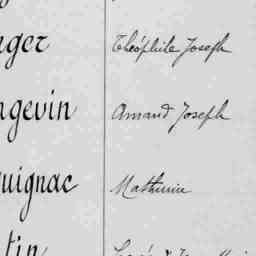 nger Théophile Joseph
ngevin Amand Joseph
uignac Mathurin
tin